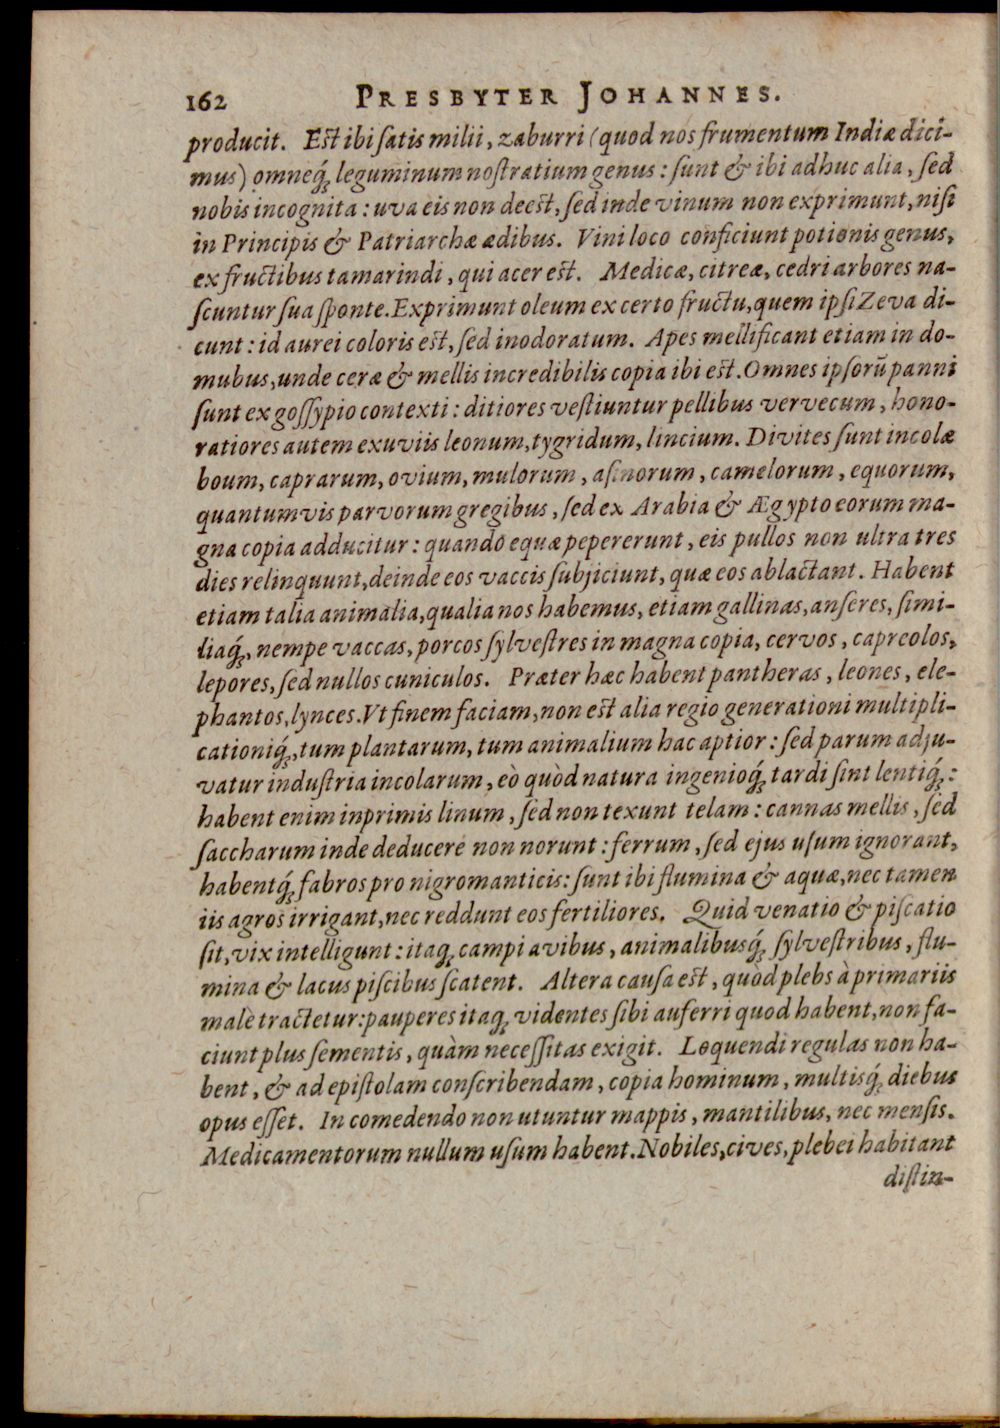 162 PRESBYTER JOHANNES.
producit. Est ibi ſatis milii, zaburri (quod nos frumentum Indiæ dici-
mus) omneq́ꝫ leguminum noſtratium genus: ſunt & ibi adhuc alia, ſed
nobis incognita: uva eis non deest, ſed inde vinum non exprimunt, niſi
in Principis & Patriarchæ ædibus. Vini loco conficiunt potionis genus,
ex fructibus tamarindi, qui acer est. Medicæ, citreæ, cedri arbores na-
ſcuntur ſua ſponte. Exprimunt oleum ex certo fructu, quem ipſi Zeva di-
cunt: id aurei coloris est, ſed inodoratum. Apes mellificant etiam in do-
mubus, unde ceræ & mellis incredibilis copia ibi est. Omnes ipſorū panni
ſunt ex goſſypio contexti: ditiores veſtiuntur pellibus vervecum, hono-
ratiores autem exuviis leonum, tygridum, lincium. Divites ſunt incolæ
boum, caprarum, ovium, mulorum, aſinorum, camelorum, equorum,
quantumvis parvorum gregibus, ſed ex Arabia & Ægypto eorum ma-
gna copia adducitur: quando equæ pepererunt, eis pullos non ultra tres
dies relinquunt, deinde eos vaccis ſubjiciunt, quæ eos ablactant. Habent
etiam talia animalia, qualia nos habemus, etiam gallinas, anſeres, ſimi-
liaq́ꝫ, nempe vaccas, porcos ſylveſtres in magna copia, cervos, capreolos,
lepores, ſed nullos cuniculos. Præter hæc habent pantheras, leones, ele-
phantos, lynces. Vt finem faciam, non est alia regio generationi multipli-
cationiq́ꝫ, tum plantarum, tum animalium hac aptior: ſed parum adju-
vatur induſtria incolarum, eò quòd natura ingenioq́ꝫ tardi ſint lentiq́ꝫ:
habent enim inprimis linum, ſed non texunt telam: cannas mellis, ſed
ſaccharum inde deducere non norunt: ferrum, ſed ejus uſum ignorant,
habentq́ꝫ fabros pro nigromanticis: ſunt ibi flumina & aquæ, nec tamen
iis agros irrigant, nec reddunt eos fertiliores. Quid venatio & piſcatio
ſit, vix intelligunt: itaqꝫ campi avibus, animalibusq́ꝫ ſylveſtribus, flu-
mina & lacus piſcibus ſcatent. Altera cauſa est, quòd plebs à primariis
malè tractetur: pauperes itaqꝫ videntes ſibi auferri quod habent, non fa-
ciunt plus ſementis, quàm neceſſitas exigit. Loquendi regulas non ha-
bent, & ad epiſtolam conſcribendam, copia hominum, multisq́ꝫ diebus
opus eſſet. In comedendo non utuntur mappis, mantilibus, nec menſis.
Medicamentorum nullum uſum habent. Nobiles, cives, plebei habitant
diſtin-